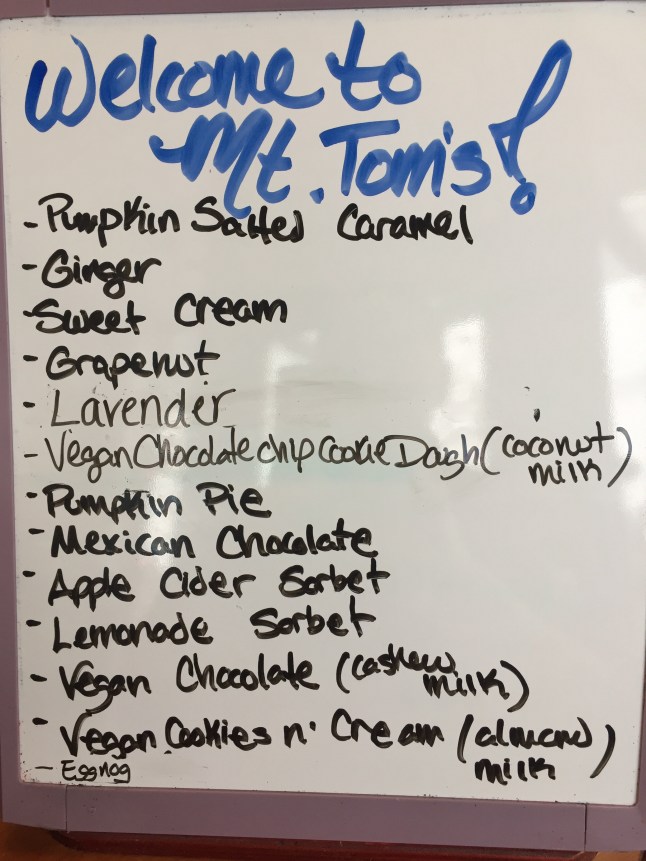 Welcome to
Mt. Tom's!
- Pumpkin Salted Caramel
- Ginger
- Sweet Cream
- Grapenut
- Lavender
- Vegan Chocolate chip Cookie Dough (coconut
milk)
- Pumpkin Pie
- Mexican Chocolate
- Apple Cider Sorbet
- Lemonade Sorbet
- Vegan Chocolate (cashew
milk)
- Vegan Cookies n' Cream (almond
milk)
- Eggnog